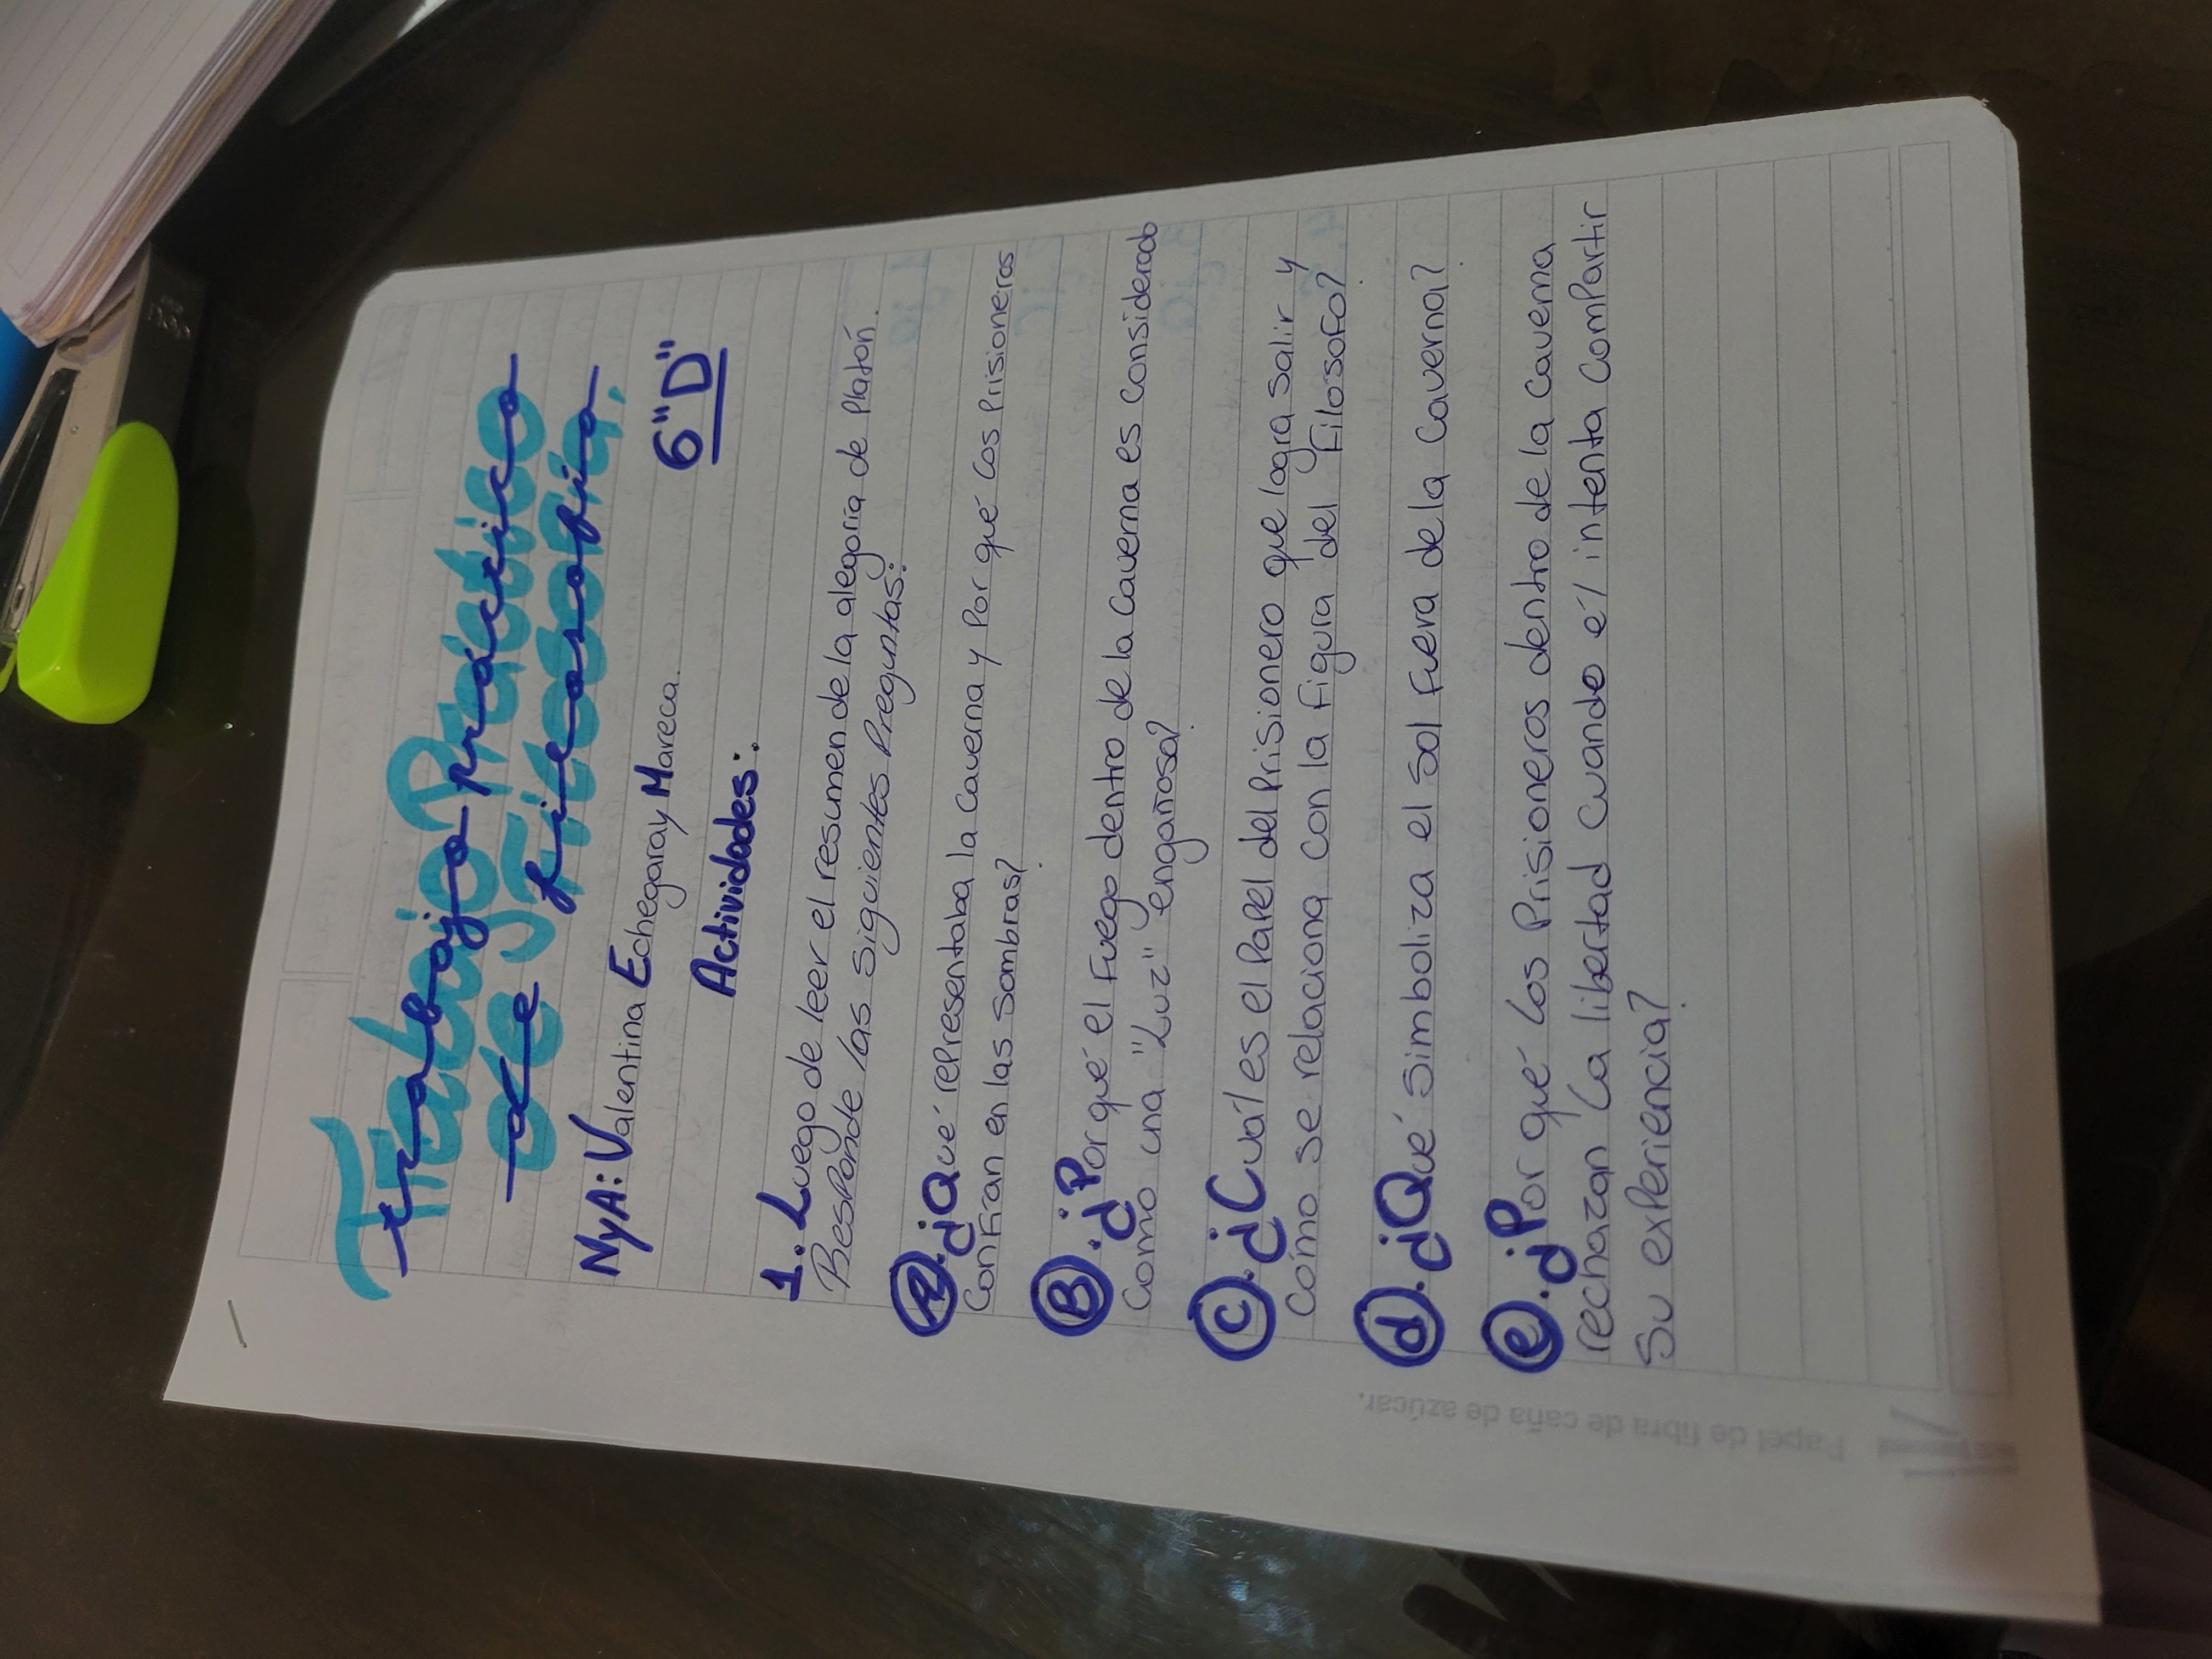 Trabajo Práctico
de Filosofía.
NyA: Valentina Echegaray Mareca.
6"D"
Actividades:
1. Luego de leer el resumen de la alegoría de Platón.
Responde las siguientes Preguntas:
A. ¿Qué representaba la Caverna y Por qué Los Prisioneros
Confían en las Sombras?
B. ¿Por qué el Fuego dentro de la Caverna es Considerado
Como una "Luz" engañosa?
C. ¿Cuál es el Papel del Prisionero que logra salir y
Cómo se relaciona Con la Figura del Filosofo?
d. ¿Qué simboliza el sol Fuera de la Caverna?
e. ¿Por qué Los Prisioneros dentro de la Caverna
rechazan La libertad Cuando él intenta ComPartir
Su exPeriencia?
Papel de fibra de caña de azúcar.